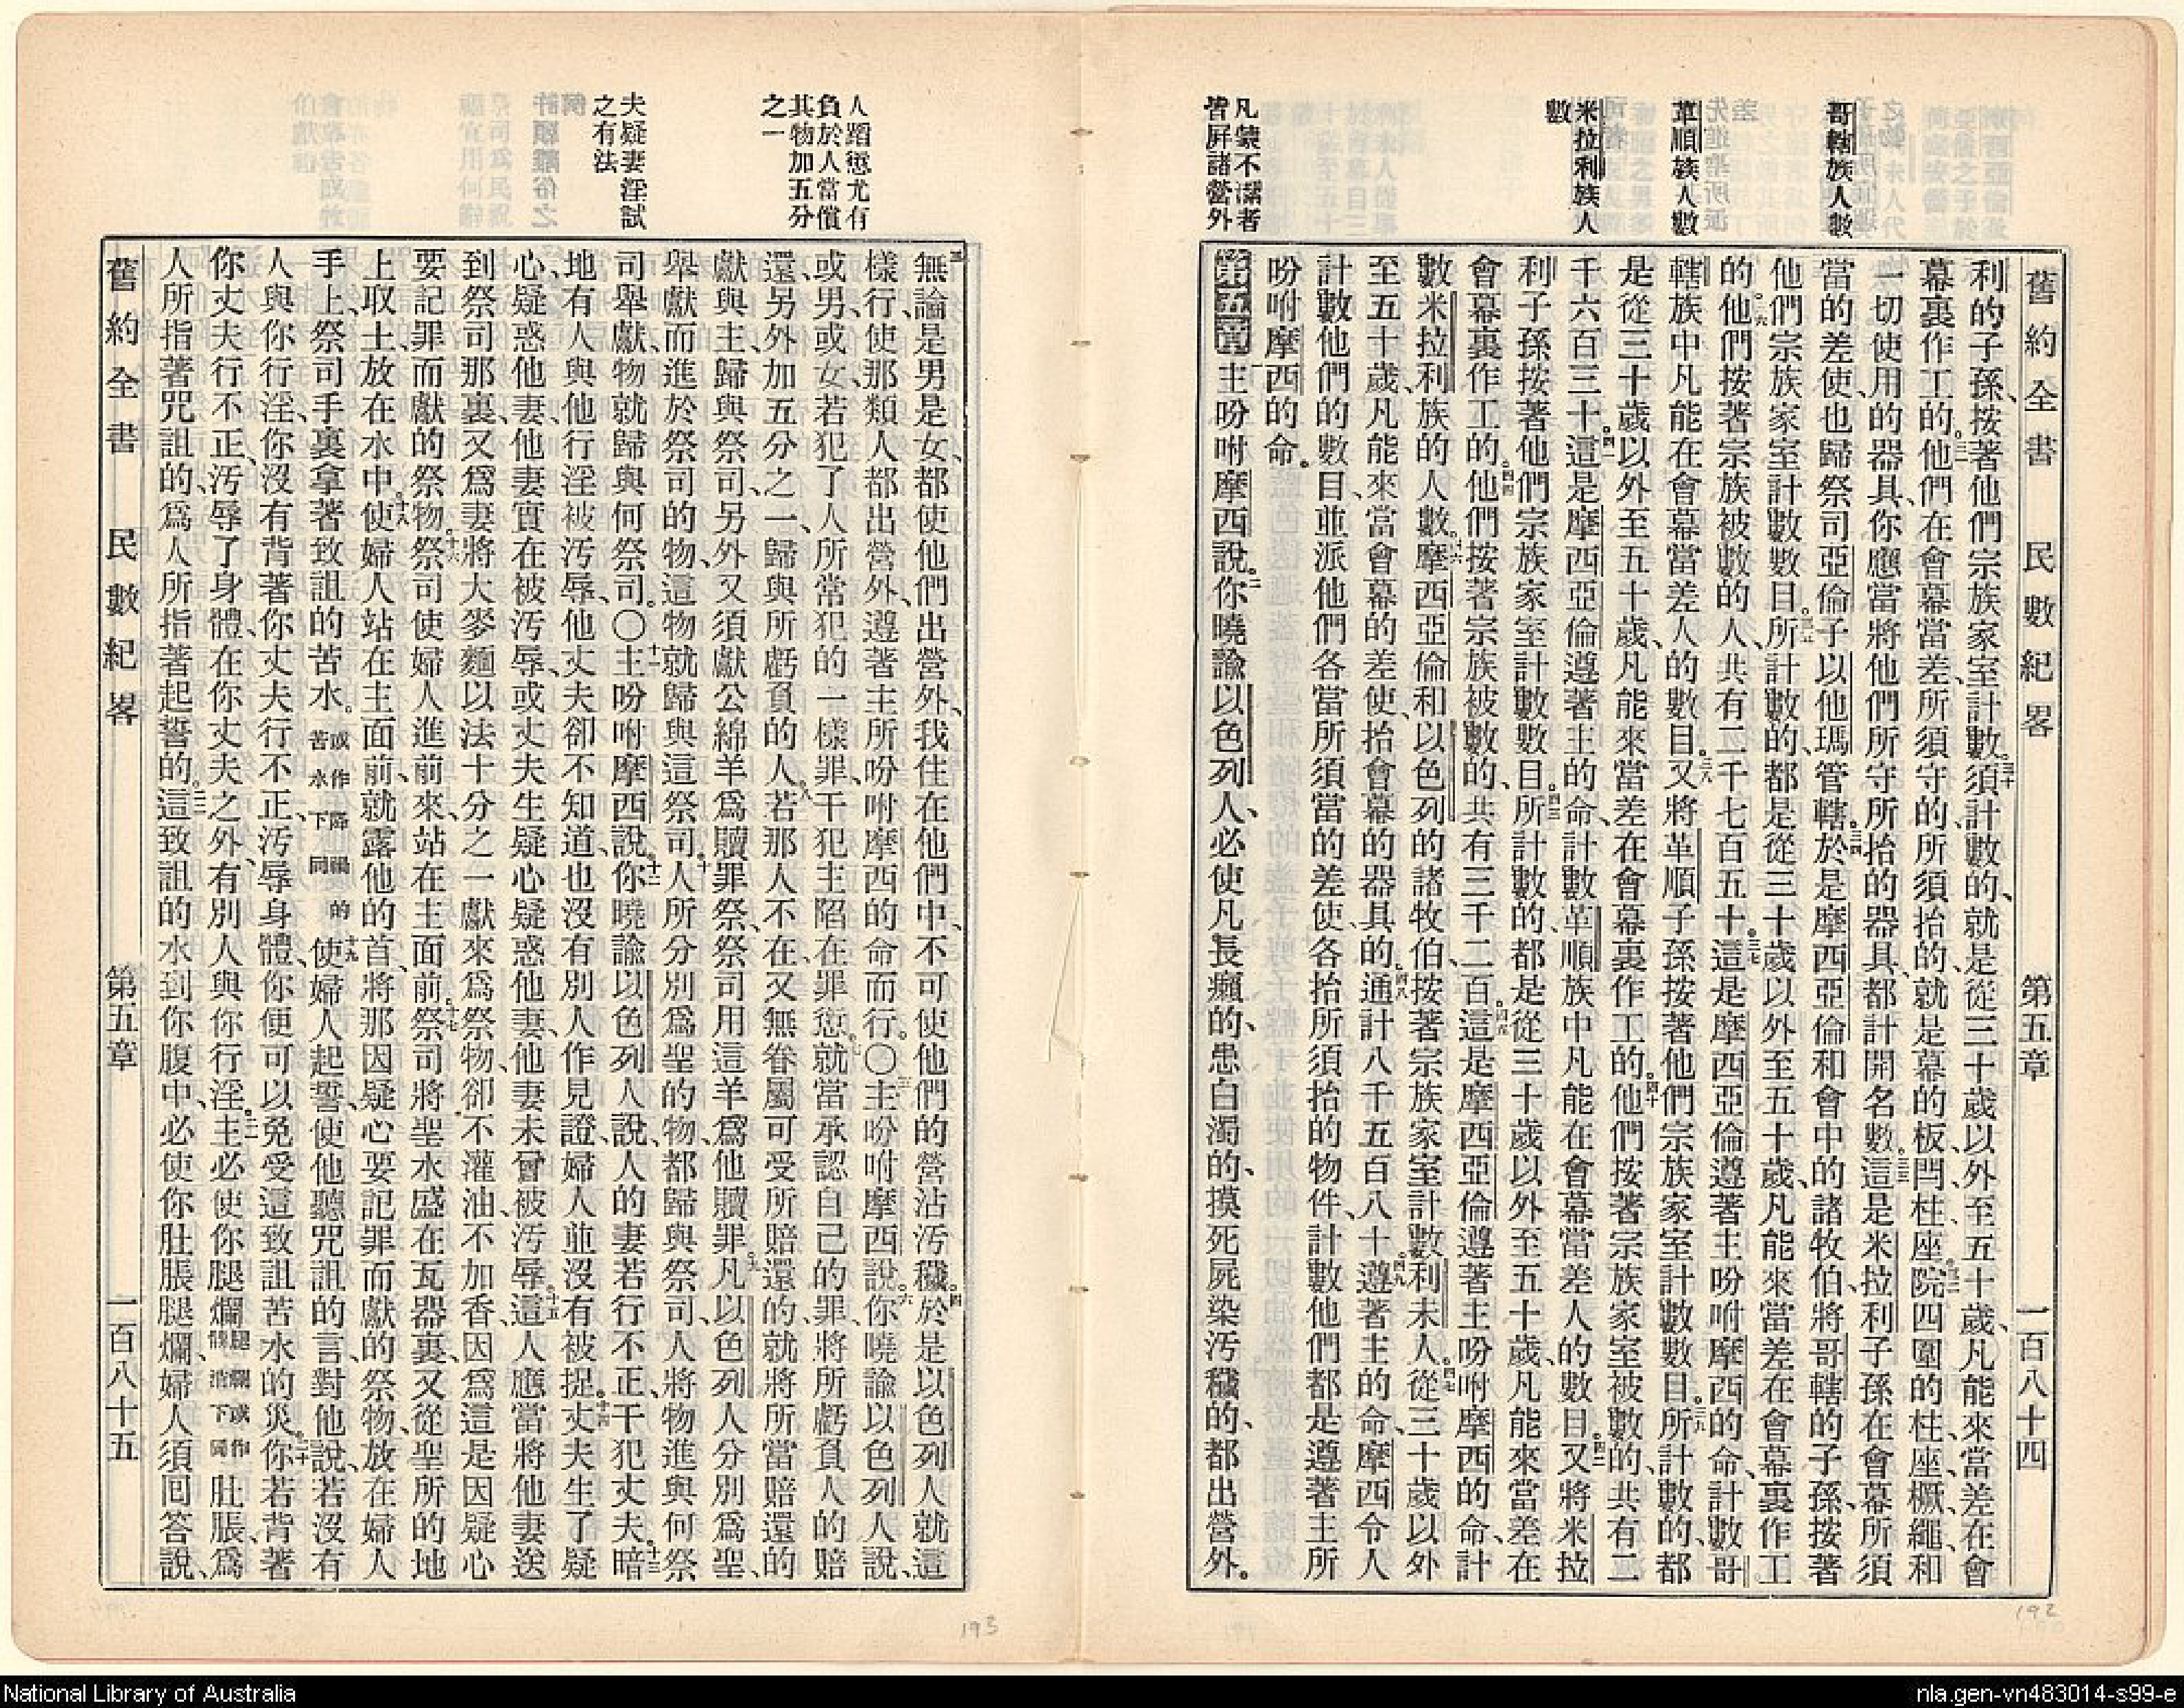 舊約全書 民數紀畧 第五章 一百八十四
哥轄族人數
革順族人數
米拉利族人
數
凡蒙不潔者
皆屏諸營外
利的子孫、按著他們宗族家室計數。三十須計數的、就是從三十歲以外至五十歲、凡能來當差在會
幕裏作工的。三一他們在會幕當差、所須守的所須抬的、就是幕的板閂柱座。三二院四圍的柱、座、橛、繩、和
一切使用的器具、你應當將他們所守所抬的器具、都計開名數。三三這是米拉利子孫在會幕所須
當的差使、也歸祭司亞倫子以他瑪管轄。三四於是摩西亞倫和會中的諸牧伯、將哥轄的子孫、按著
他們宗族家室計數數目。三五所計數的、都是從三十歲以外至五十歲、凡能來當差在會幕裏作工
的。三六他們按著宗族被數的人、共有二千七百五十。三七這是摩西亞倫遵著主吩咐摩西的命、計數哥
轄族中凡能在會幕當差人的數目。三八又將革順子孫按著他們宗族家室計數數目。三九所計數的、都
是從三十歲以外至五十歲、凡能來當差在會幕裏作工的。四十他們按著宗族家室被數的、共有二
千六百三十。四一這是摩西亞倫遵著主的命、計數革順族中凡能在會幕當差人的數目。四二又將米拉
利子孫按著他們宗族家室計數數目。四三所計數的、都是從三十歲以外至五十歲、凡能來當差在
會幕裏作工的。四四他們按著宗族被數的、共有三千二百。四五這是摩西亞倫遵著主吩咐摩西的命、計
數米拉利族的人數。四六摩西亞倫和以色列的諸牧伯、按著宗族家室計數利未人。四七從三十歲以外
至五十歲、凡能來當會幕的差使、抬會幕的器具的。四八通計八千五百八十。四九遵著主的命、摩西令人
計數他們的數目、並派他們各當所須當的差使、各抬所須抬的物件、計數他們都是遵著主所
吩咐摩西的命。
第五章 一主吩咐摩西說。二你曉諭以色列人、必使凡長癩的、患白濁的、摸死屍染汚穢的、都出營外。
人蹈愆尤有
負於人當償
其物加五分
之一
夫疑妻淫試
之有法
三無論是男是女、都使他們出營外、我住在他們中、不可使他們的營沾汚穢。四於是以色列人就這
樣行、使那類人都出營外、遵著主所吩咐摩西的命而行。〇五主吩咐摩西說。六你曉諭以色列人說、
或男、或女、若犯了人所常犯的一樣罪、干犯主陷在罪愆。七就當承認自己的罪、將所虧負人的賠
還、另外加五分之一、歸與所虧負的人。八若那人不在、又無眷屬可受所賠還的、就將所當賠還的
獻與主歸與祭司、另外又須獻公綿羊爲贖罪祭、祭司用這羊爲他贖罪。九凡以色列人分別爲聖、
舉獻而進於祭司的物、這物就歸與這祭司。十人所分別爲聖的物、都歸與祭司、人將物進與何祭
司舉獻、物就歸與何祭司。〇十一主吩咐摩西說。十二你曉諭以色列人說、人的妻若行不正、干犯丈夫。十三暗
地有人與他行淫被汚辱、他丈夫卻不知道、也沒有別人作見證、婦人並沒有被捉。十四丈夫生了疑
心、疑惑他妻、他妻實在被汚辱、或丈夫生疑心疑惑他妻、他妻未曾被汚辱。十五這人應當將他妻送
到祭司那裏、又爲妻將大麥麵以法十分之一獻來爲祭物、卻不灌油、不加香、因爲這是因疑心
要記罪而獻的祭物。十六祭司使婦人進前來、站在主面前。十七祭司將聖水盛在瓦器裏、又從聖所的地
上取土放在水中。十八使婦人站在主面前、就露他的首、將那因疑心要記罪而獻的祭物、放在婦人
手上、祭司手裏拿著致詛的苦水。或作降禍的苦水下同十九使婦人起誓、使他聽咒詛的言、對他說、若沒有
人與你行淫、你沒有背著你丈夫行不正、汚辱身體、你便可以免受這致詛苦水的災。二十你若背著
你丈夫行不正、汚辱了身體、在你丈夫之外、有別人與你行淫。二一主必使你腿爛腿爛或作髀消下同肚脹、爲
人所指著咒詛的、爲人所指著起誓的。二二這致詛的水到你腹中、必使你肚脹腿爛、婦人須回答說、
舊約全書 民數紀畧 第五章 一百八十五
192
193
National Library of Australia
nla.gen-vn483014-s99-e